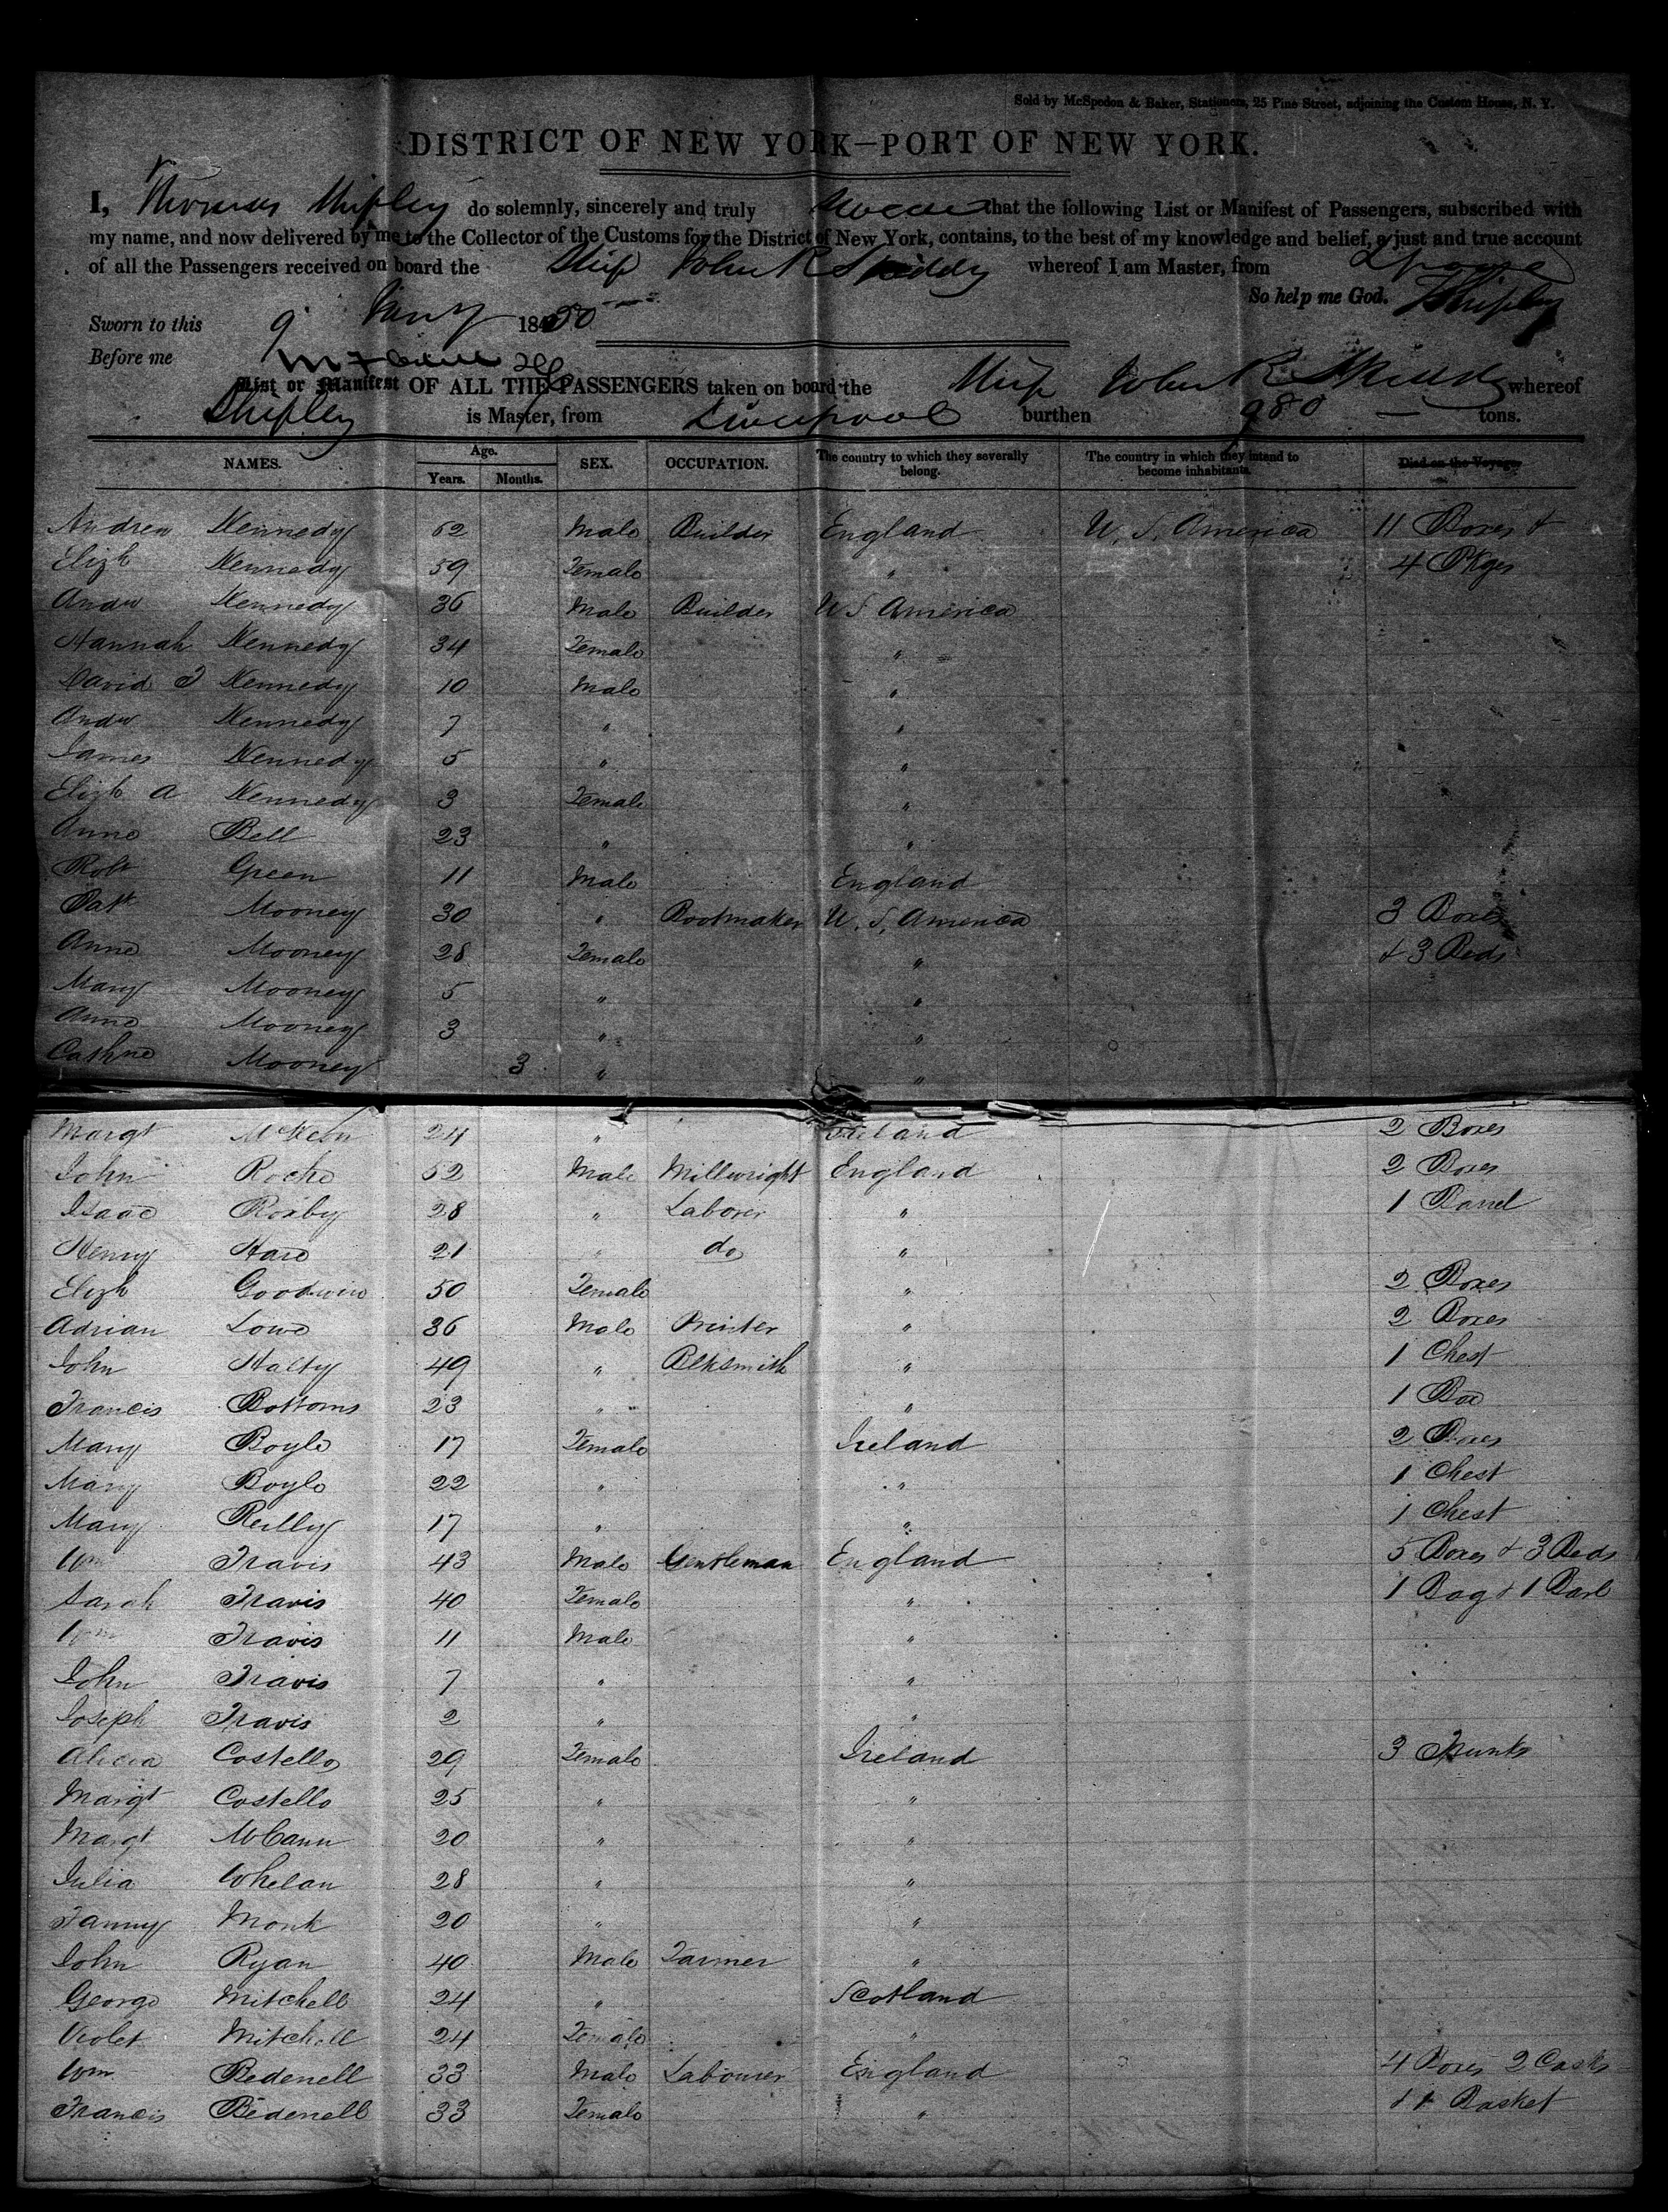 Sold by McSpedon & Baker, Stationers, 25 Pine Street, adjoining the Custom House, N. Y.
DISTRICT OF NEW YORK—PORT OF NEW YORK.
I, Thomas Shipley do solemnly, sincerely and truly that the following List or Manifest of Passengers, subscribed with
my name, and now delivered by me to the Collector of the Customs for the District of New York, contains, to the best of my knowledge and belief, a just and true account
of all the Passengers received on board the Ship John R Skiddy whereof I am Master, from Lpool
So help me God. TShipley
Sworn to this 9 Jany 1850
Before me
List or Manifest OF ALL THE PASSENGERS taken on board the Ship John R Skiddy whereof
Shipley is Master, from Liverpool burthen 980 — tons.
NAMES. Age. Years. Months. SEX. OCCUPATION. The country to which they severally belong. The country in which they intend to become inhabitants. Died on the Voyage.
Andrew Kennedy 62 Male Builder England U. S. America 11 Boxes &
Elizh Kennedy 59 Female " 4 Pkges
Andw Kennedy 36 Male Builder U S America
Hannah Kennedy 34 Female "
David J Kennedy 10 Male "
Andw Kennedy 7 " "
James Kennedy 5 " "
Elizh A Kennedy 3 Female "
Anne Bell 23 " "
Robt Green 11 Male England
Patk Mooney 30 " Bootmaker U. S. America 3 Boxes
Anne Mooney 28 Female " & 3 Beds
Mary Mooney 5 " "
Anne Mooney 3 " "
Cathne Mooney 3 " "
Margt McKeon 24 " Ireland 2 Boxes
John Roche 52 Male Millwright England 2 Boxes
Isaac Roxby 28 " Laborer " 1 Barrel
Henry Hare 21 " do "
Elizh Goodwin 50 Female " 2 Boxes
Adrian Lowe 36 Male Printer " 2 Boxes
John Halty 49 " Blksmith " 1 Chest
Francis Bottoms 23 " " 1 Box
Mary Boyle 17 Female Ireland 2 Boxes
Mary Boyle 22 " " 1 Chest
Mary Reilly 17 " " 1 Chest
Wm Travis 43 Male Gentleman England 5 Boxes & 3 Beds
Sarah Travis 40 Female " 1 Bag & 1 Barl
Wm Travis 11 Male "
John Travis 7 " "
Joseph Travis 2 " "
Alicia Costello 29 Female Ireland 3 Trunks
Margt Costello 25 " "
Margt McCann 20 " "
Julia Whelan 28 " "
Fanny Monk 20 " "
John Ryan 40 Male Farmer "
George Mitchell 24 " Scotland
Violet Mitchell 24 Female "
Wm Bedenell 33 Male Labourer England 4 Boxes 2 Casks
Francis Bedenell 33 Female " & 1 Basket